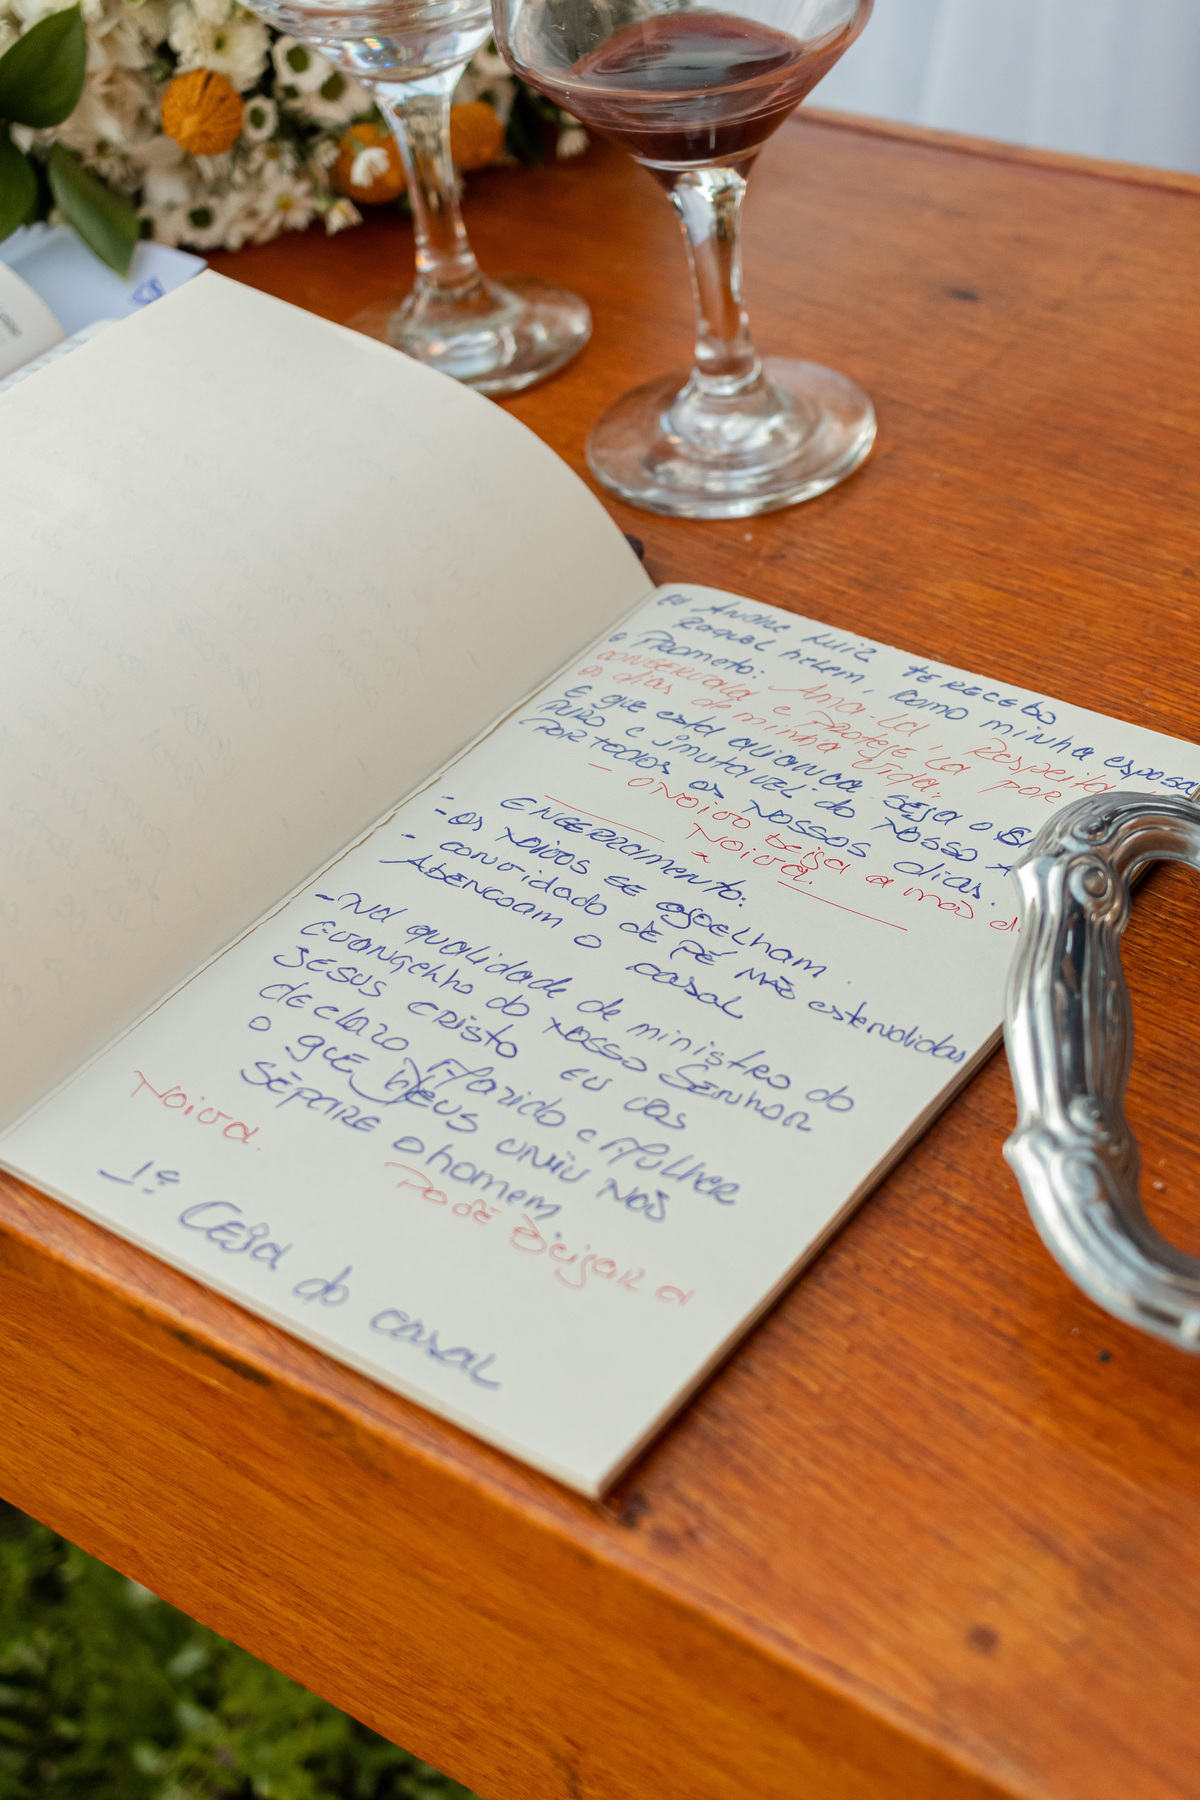 EU Andre Luiz te recebo
Raquel helem, como minha esposa
e Prometo: Ama-La, Respeita
conserva-la e Protege-La por
os dias de minha vida.
E que esta aliança seja o
Puro e imutavel do Nosso
Por todos os Nossos dias.
- o Noivo beija a mão d
Noiva.
ENCERRAMENTO:
- os Noivos se ajoelham.
- convidado de pé mão estendidas
Abençoam o casal
- Na qualidade de ministro do
Evangelho do Nosso Senhor
Jesus Cristo eu vos
declaro Marido e Mulher
o que Deus uniu Não
separe o homem
Pode Beijar a
Noiva.
1ª Ceia do casal